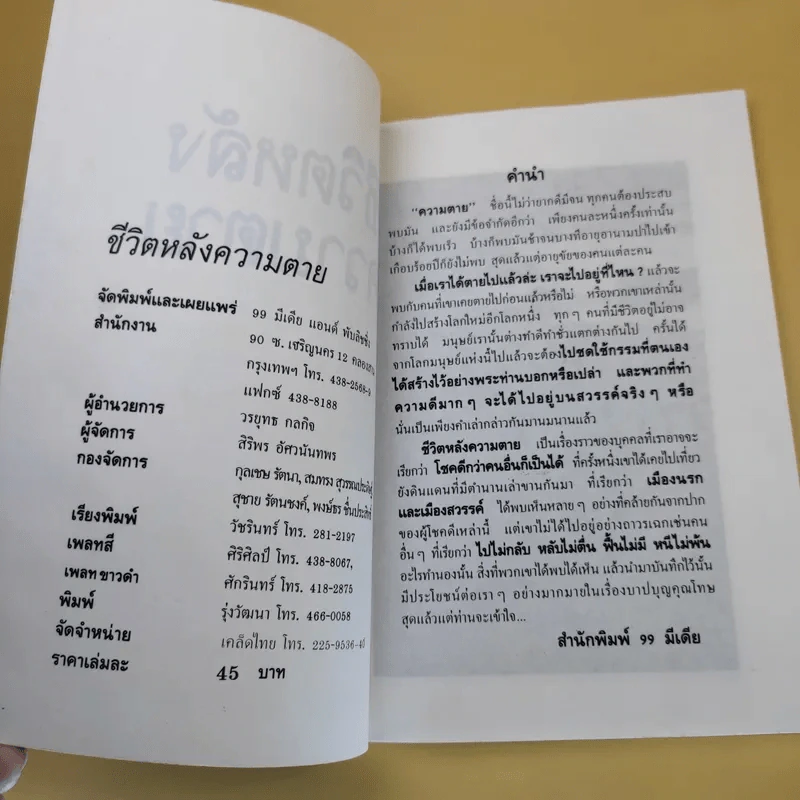 ชีวิตหลังความตาย
จัดพิมพ์และเผยแพร่ 99 มีเดีย แอนด์ พับลิชชิ่ง
สำนักงาน 90 ซ. เจริญนคร 12 คลองสาน
กรุงเทพฯ โทร. 438-2568-9
แฟกซ์ 438-8188
ผู้อำนวยการ วรยุทธ กลกิจ
ผู้จัดการ สิริพร อัศวนันทพร
กองจัดการ กุลเชษ รัตนา, สมทรง สุวรรณประดิษฐ์
สุชาย รัตนชงค์, พงษ์ธร ชื่นประดิษฐ์
เรียงพิมพ์ วัชรินทร์ โทร. 281-2197
เพลทสี ศิริศิลป์ โทร. 438-8067,
เพลทขาวดำ ศักรินทร์ โทร. 418-2875
พิมพ์ รุ่งวัฒนา โทร. 466-0058
จัดจำหน่าย เคล็ดไทย โทร. 225-9536-40
ราคาเล่มละ 45 บาท
คำนำ
"ความตาย" ชื่อนี้ไม่ว่ายากดีมีจน ทุกคนต้องประสบ
พบมัน และยังมีข้อจำกัดอีกว่า เพียงคนละหนึ่งครั้งเท่านั้น
บ้างก็ได้พบเร็ว บ้างก็พบมันช้าจนบางทีอายุฮานามปาไปเข้า
เกือบร้อยปีก็ยังไม่พบ สุดแล้วแต่อายุขัยของคนแต่ละคน
เมื่อเราได้ตายไปแล้วล่ะ เราจะไปอยู่ที่ไหน ? แล้วจะ
พบกับคนที่เขาเคยตายไปก่อนแล้วหรือไม่ หรือพวกเขาเหล่านั้น
กำลังไปสร้างโลกใหม่อีกโลกหนึ่ง ทุก ๆ คนที่มีชีวิตอยู่ไม่อาจ
ทราบได้ มนุษย์เรานั้นต่างทำดีทำชั่วแตกต่างกันไป ครั้นได้
จากโลกมนุษย์แห่งนี้ไปแล้วจะต้องไปชดใช้กรรมที่ตนเอง
ได้สร้างไว้อย่างพระท่านบอกหรือเปล่า และพวกที่ทำ
ความดีมาก ๆ จะได้ไปอยู่บนสวรรค์จริง ๆ หรือ
นั่นเป็นเพียงคำเล่ากล่าวกันมานมนานแล้ว
ชีวิตหลังความตาย เป็นเรื่องราวของบุคคลที่เราอาจจะ
เรียกว่า โชคดีกว่าคนอื่นก็เป็นได้ ที่ครั้งหนึ่งเขาได้เคยไปเที่ยว
ยังดินแดนที่มีตำนานเล่าขานกันมา ที่เรียกว่า เมืองนรก
และเมืองสวรรค์ ได้พบเห็นหลาย ๆ อย่างที่คล้ายกันจากปาก
ของผู้โชคดีเหล่านี้ แต่เขาไม่ได้ไปอยู่อย่างถาวรเฉกเช่นคน
อื่น ๆ ที่เรียกว่า ไปไม่กลับ หลับไม่ตื่น ฟื้นไม่มี หนีไม่พ้น
อะไรทำนองนั้น สิ่งที่พวกเขาได้พบได้เห็น แล้วนำมาบันทึกไว้นั้น
มีประโยชน์ต่อเรา ๆ อย่างมากมายในเรื่องบาปบุญคุณโทษ
สุดแล้วแต่ท่านจะเข้าใจ...
สำนักพิมพ์ 99 มีเดีย